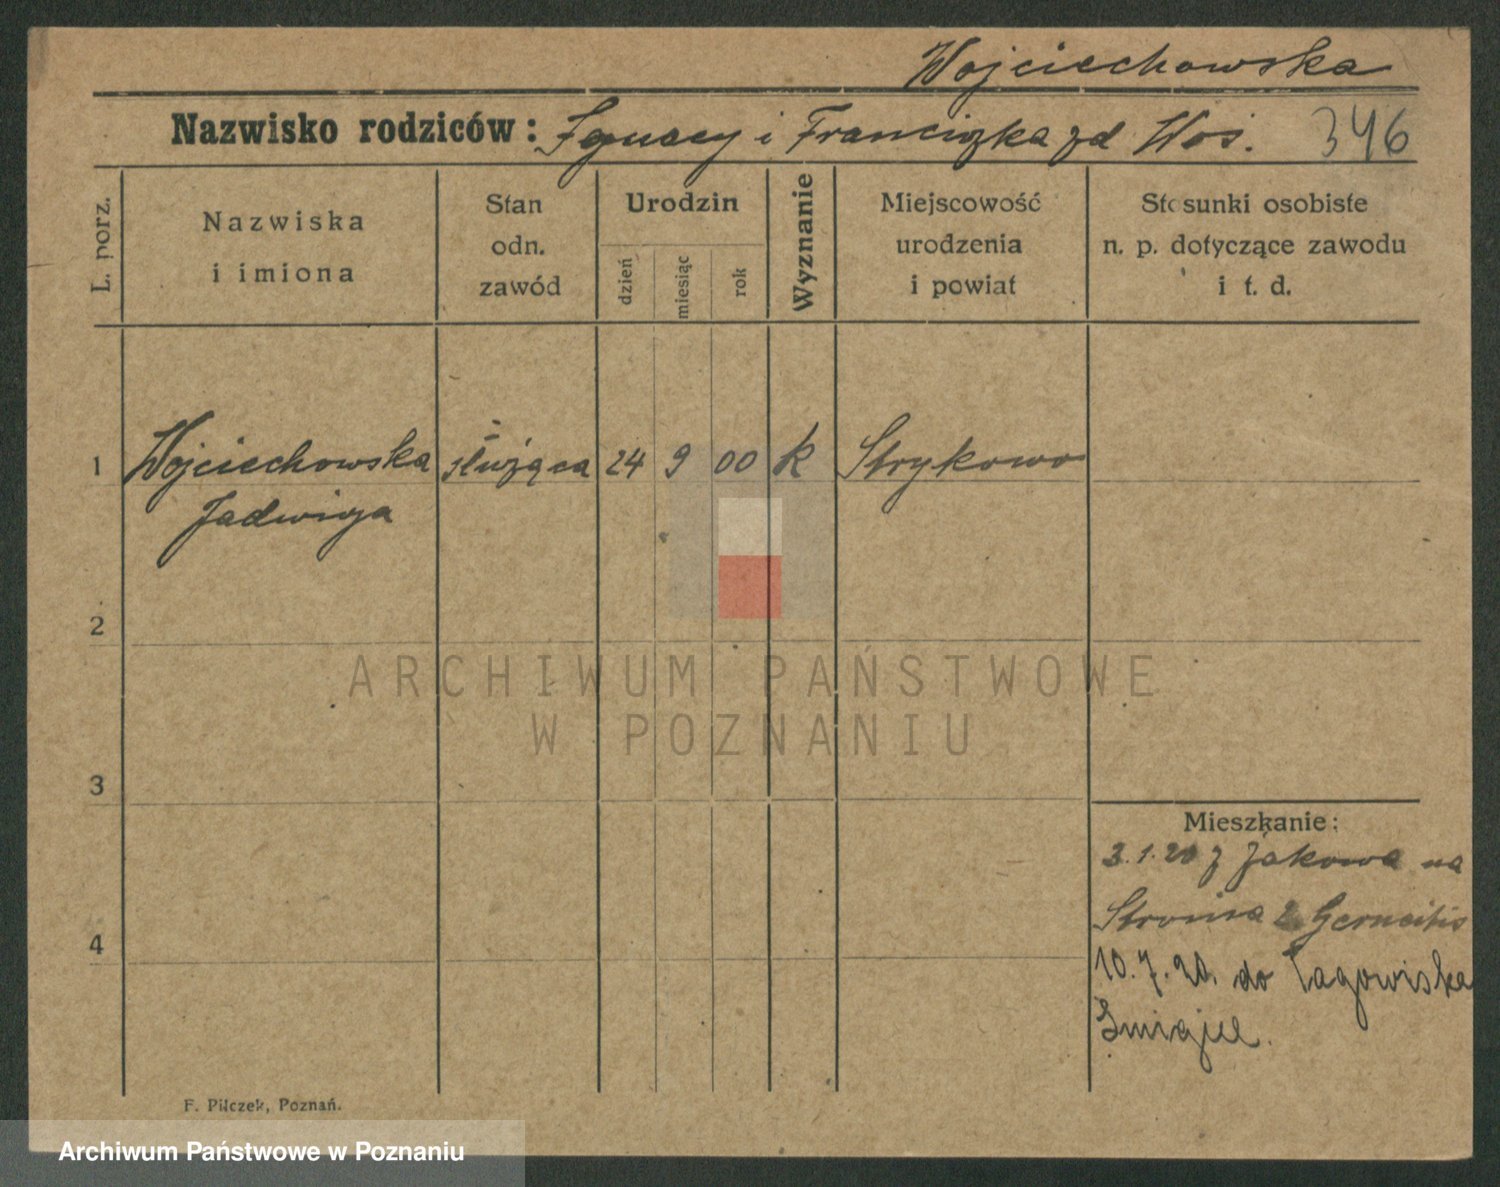 Wojciechowska
Nazwisko rodziców: Ignacy i Franciszka zd Woś.
346
L. porz.
Nazwiska
i imiona
Stan
odn.
zawód
Urodzin
dzień
miesiąc
rok
Wyznanie
Miejscowość
urodzenia
i powiat
Stosunki osobiste
n. p. dotyczące zawodu
i t. d.
1 Wojciechowska służąca 24 9 00 k Strykowo
Jadwiga
2
ARCHIWUM PAŃSTWOWE
W POZNANIU
3
Mieszkanie:
3.1.20 z Jakowa na
4
10.7.20. do Łagowiska
Śmigiel.
F. Pilczek, Poznań.
Archiwum Państwowe w Poznaniu